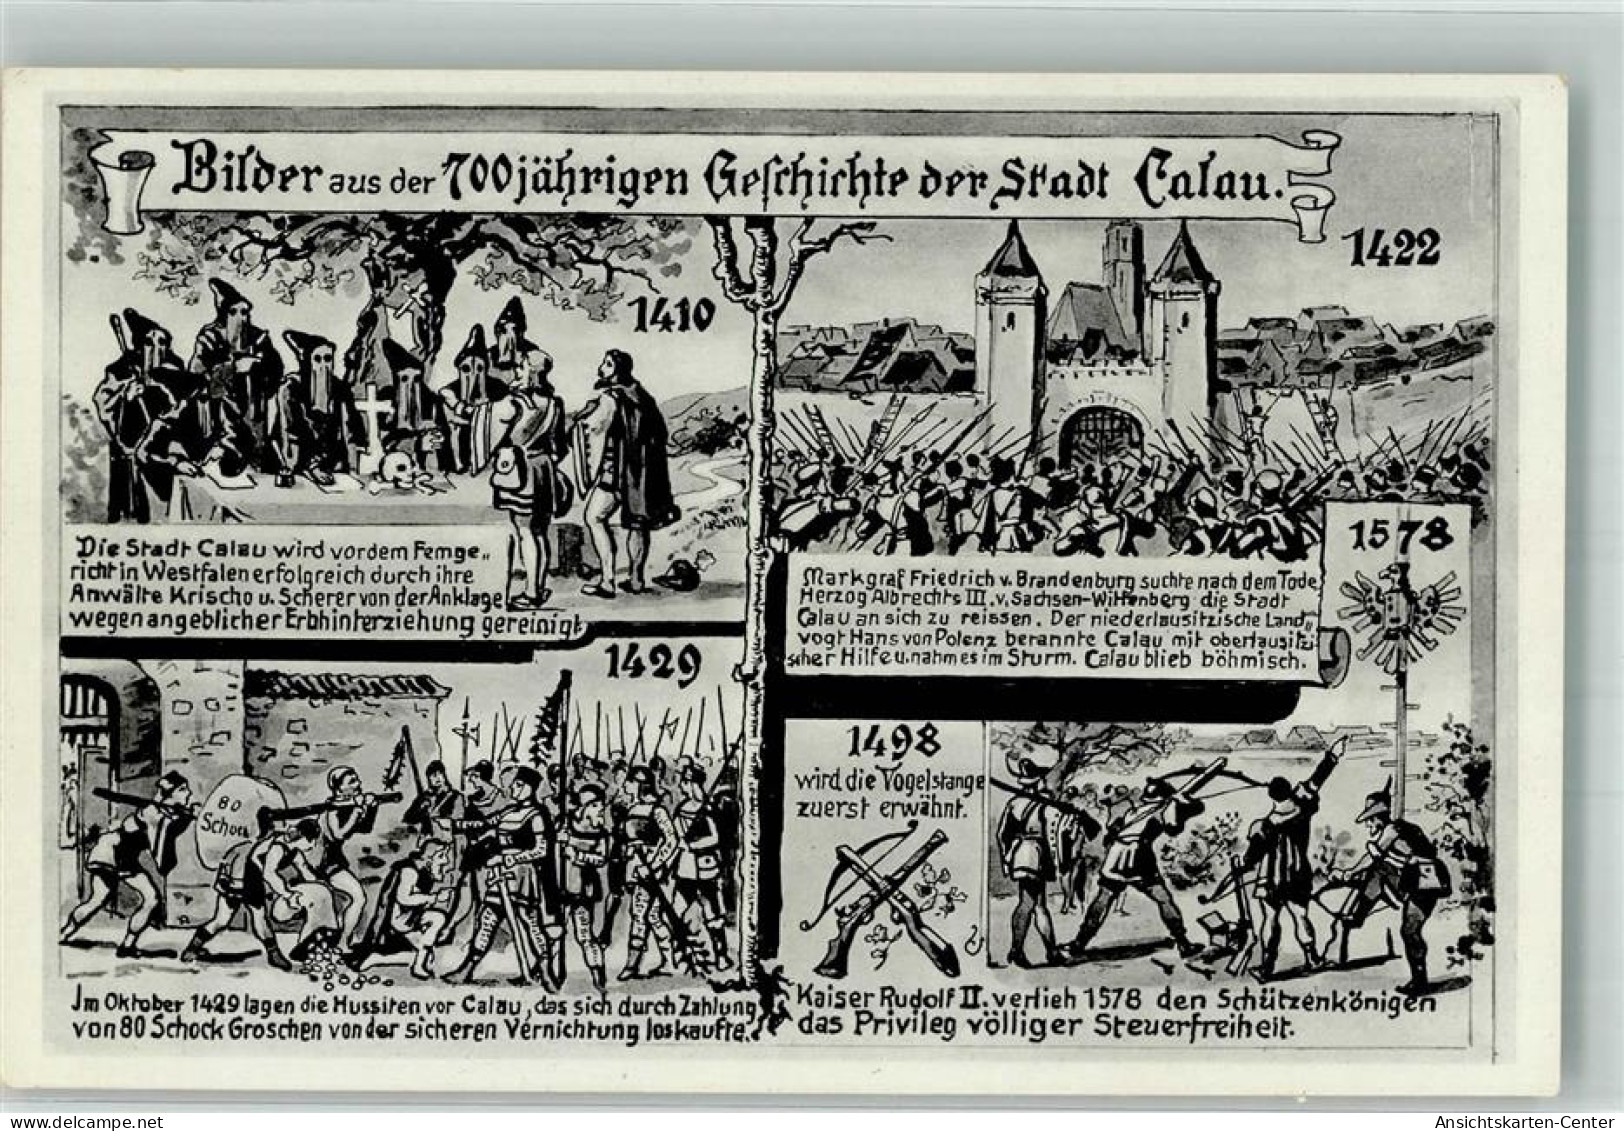 Bilder aus der 700jährigen Geschichte der Stadt Calau.
1410
Die Stadt Calau wird vor dem Femge„
richt in Westfalen erfolgreich durch ihre
Anwälte Krischo u. Scherer von der Anklage
wegen angeblicher Erbhinterziehung gereinigt
1422
Markgraf Friedrich v. Brandenburg suchte nach dem Tode
Herzog Albrechts III. v. Sachsen-Wittenberg die Stadt
Calau an sich zu reissen. Der niederlausitzische Land„
vogt Hans von Polenz berannte Calau mit oberlausitzi
scher Hilfe u. nahm es im Sturm. Calau blieb böhmisch.
1429
80
Schock
Im Oktober 1429 lagen die Hussiten vor Calau, das sich durch Zahlung
von 80 Schock Groschen von der sicheren Vernichtung loskaufte.
1498
wird die Vogelstange
zuerst erwähnt.
1578
Kaiser Rudolf II. verlieh 1578 den Schützenkönigen
das Privileg völliger Steuerfreiheit.
Ansichtskarten-Center